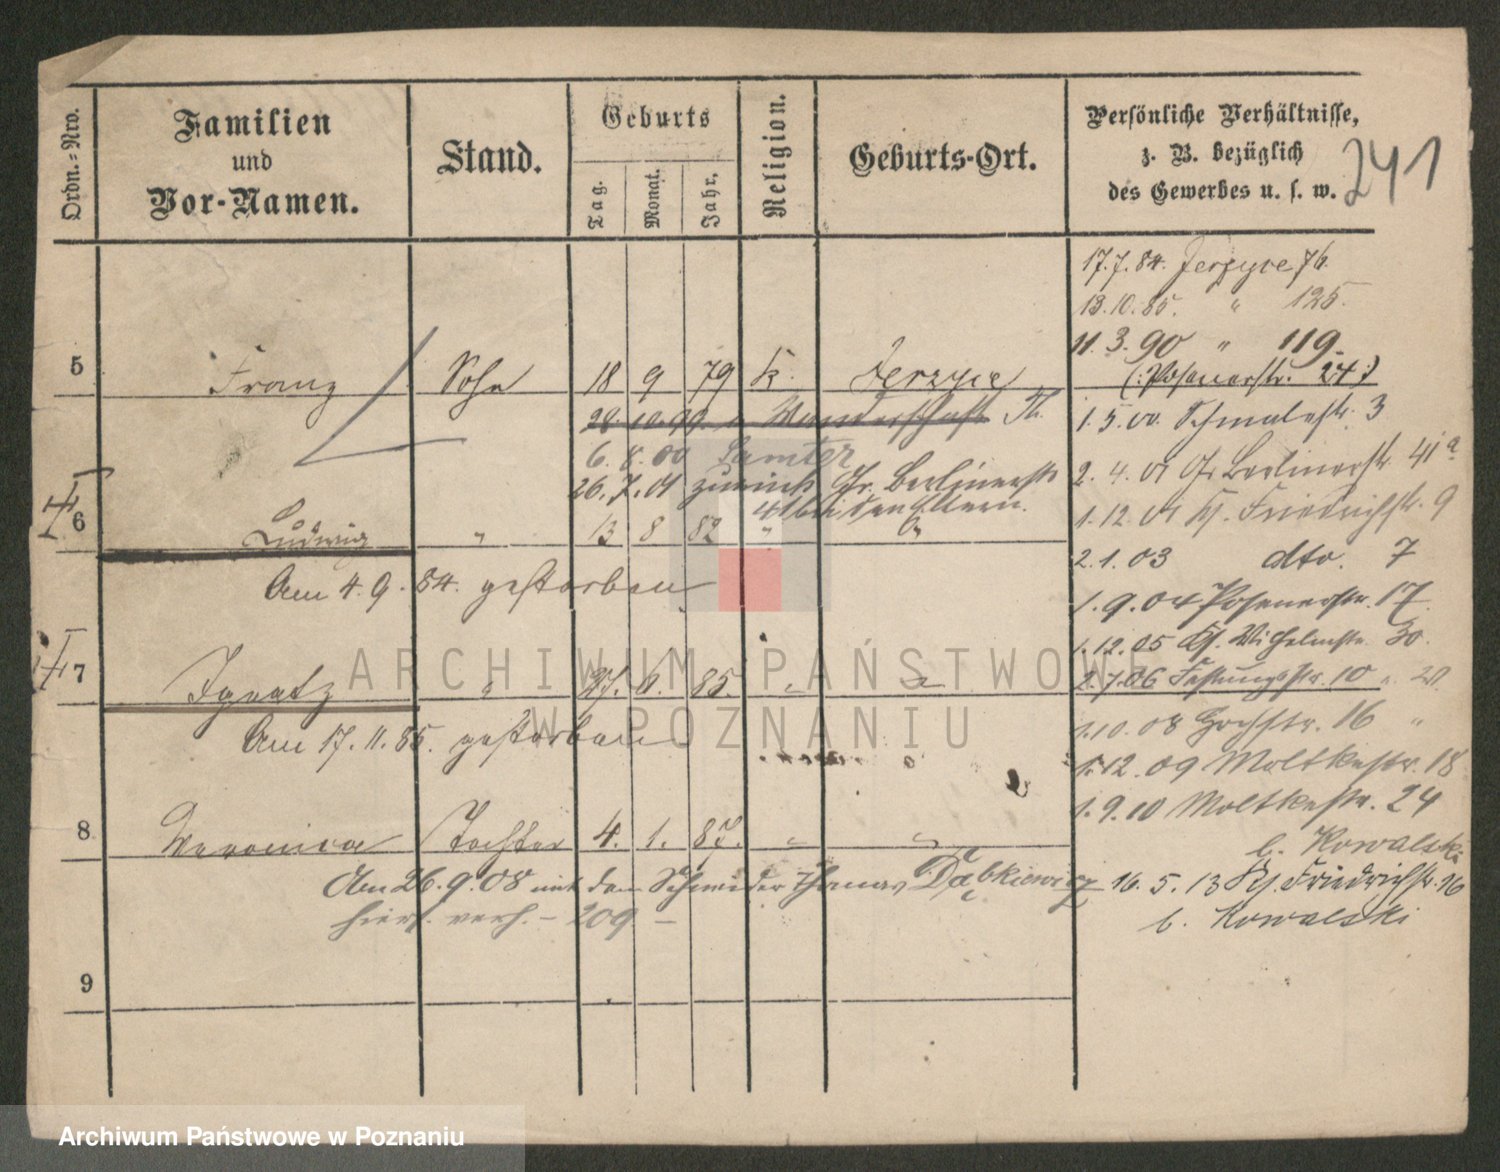 Ordn.-Nro.
Familien
und
Vor-Namen.
Stand.
Geburts
Tag.
Monat.
Jahr.
Religion.
Geburts-Ort.
Persönliche Verhältnisse,
z. B. bezüglich
des Gewerbes u. s. w.
241
17.7.84. Jerzyce 76.
13.10.85. " 125.
11.3.90 " 119.
(: Posenerstr. 24 :)
5 Franz Sohn 18 9 79 k. Jerzyce
28.10.99. Wanderschaft
1.5.00. Schmalestr. 3
6.8.00 Samter
2.4.01 Gr. Berlinerstr. 41a
26.7.01 zurück Gr. Berlinerstr.
41 bei den Eltern.
1.12.01 Kl. Friedrichstr. 9
6 Ludwig " 13 8 82 " "
2.1.03 dto. 7
Am 4.9.84. gestorben
1.9.04 Posenerstr. 17.
1.12.05 Kl. Wilhelmstr. 30.
7 Ignatz " 27. 6. 85. " "
2.7.06 Festungsstr. 10
Am 17.11.85. gestorben
1.10.08 Hochstr. 16 "
1.12.09 Moltkestr. 18
1.9.10 Moltkestr. 24
b. Kowalski
8 Veronica Tochter 4. 1. 87. " "
Am 26.9.08 mit dem Schneider Thomas Dąbkiewicz
16.5.13 Kl. Friedrichstr. 26
b. Kowalski
hier verh. – 209 –
9
ARCHIWUM PAŃSTWOWE
W POZNANIU
Archiwum Państwowe w Poznaniu